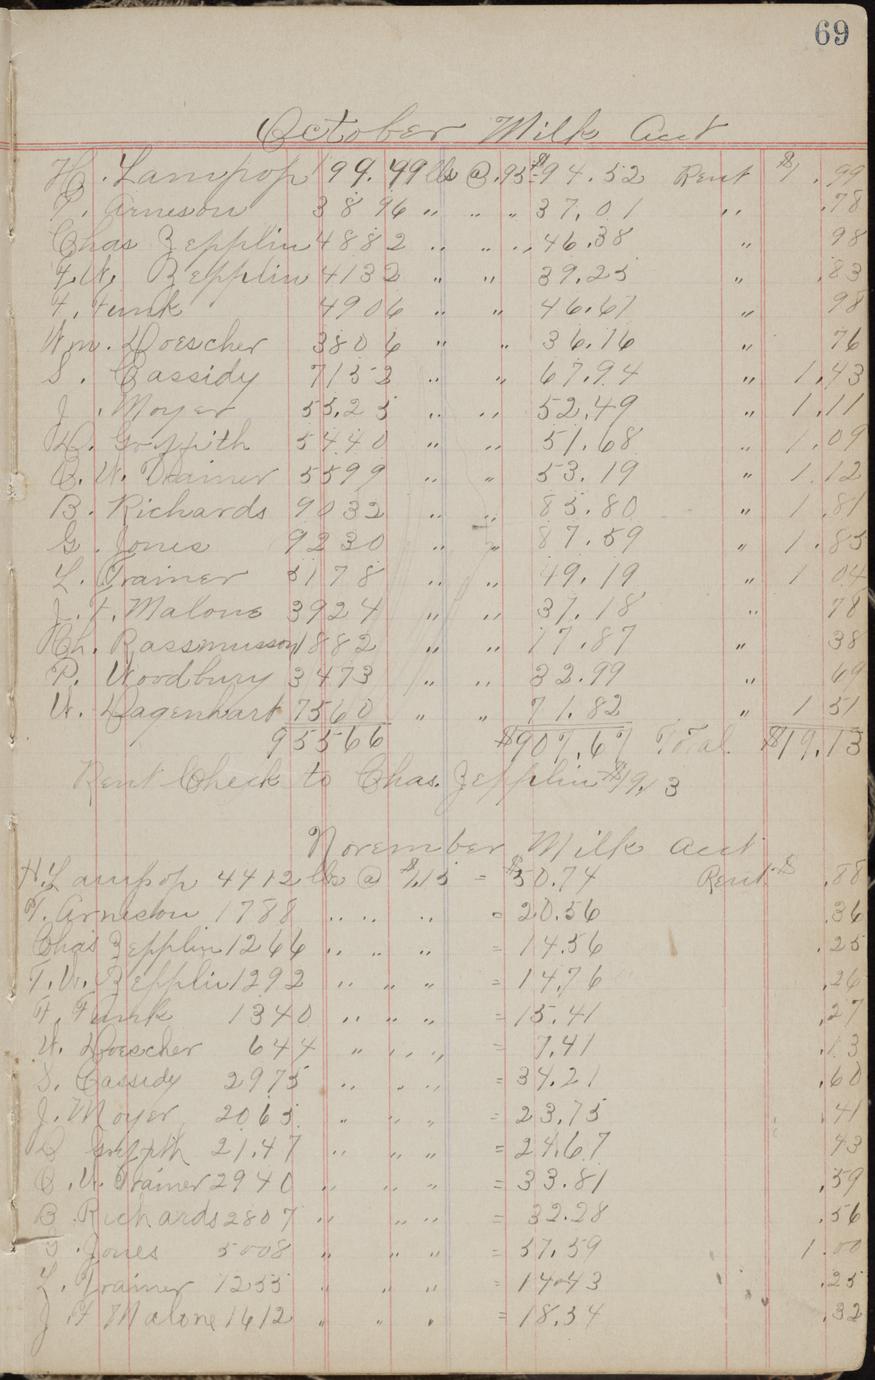 69
October Milk Acct
H. Lampop 99.49 lbs @ .95 $94.52 Rent $1.99
P. Arneson 3896 " " " 37.01 " .78
Chas Zepplin 4882 " " " 46.38 " 98
F.W. Zepplin 4132 " " 39.25 " .83
F. Funk 4906 " " 46.61 " 98
Wm. Doescher 3806 " " 36.16 " 76
S. Cassidy 7152 " " 67.94 " 1.43
J. Moyer 55.25 " " 52.49 " 1.11
D. Griffith 5440 " " 51.68 " 1.09
C. W. Trainer 5599 " " 53.19 " 1.12
B. Richards 9032 " " 85.80 " 1.81
G. Jones 9230 " " 87.59 " 1.85
L. Trainer 5178 " " 49.19 " 1 04
J. F. Malone 3924 " " 37.18 " 78
Ch. Rassmusson 1882 " " 17.87 " 38
P. Woodbury 3473 " " 32.99 " 69
W. Dagenhart 7560 " " 71.82 " 1 51
95566 $907.67 Total $19.13
Rent Check to Chas. Zepplin $19.13
November Milk acct
H. Lampop 4412 lbs @ $1.15 = $50.74 Rent $ .88
P. Arneson 1788 " " " = 20.56 .36
Chas Zepplin 1266 " " " = 14.56 .25
F. W. Zepplin 1292 " " " = 14.76 .26
F. Funk 1340 " " " = 15.41 .27
W. Doescher 644 " " " = 7.41 .13
S. Cassidy 2975 " " " = 34.21 .60
J. Moyer 2065 " " " = 23.75 .41
D Griffith 21.47 " " " = 24.67 43
C. W. Trainer 2940 " " " = 33.81 .59
B. Richards 2807 " " " = 32.28 .56
G. Jones 5008 " " " = 57.59 1.00
L. Trainer 1255 " " " = 14.43 .25
J F Malone 1612 " " " = 18.54 .32